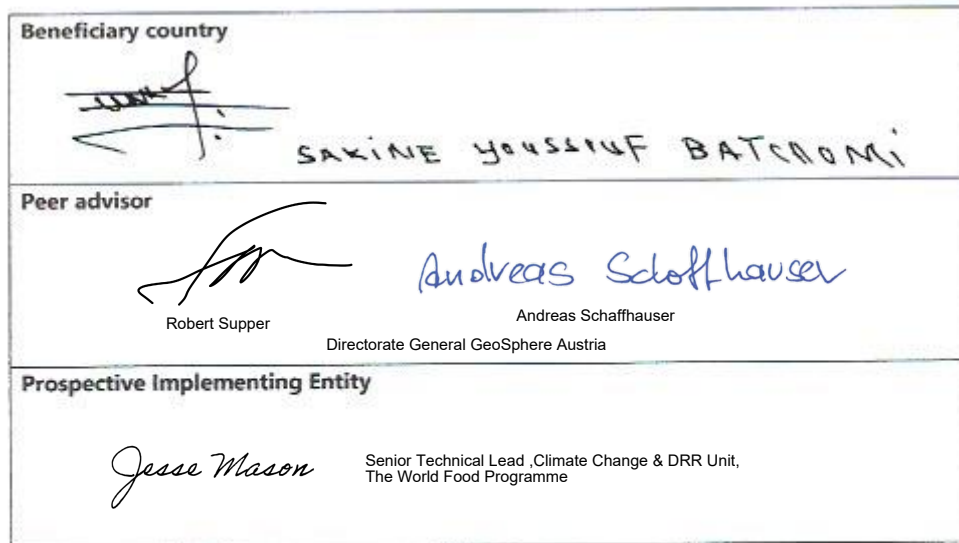 Beneficiary country
SAKINE YOUSSOUF BATCHOMI
Peer advisor
Andreas Schaffhauser
Robert Supper
Andreas Schaffhauser
Directorate General GeoSphere Austria
Prospective Implementing Entity
Jesse Mason
Senior Technical Lead ,Climate Change & DRR Unit,
The World Food Programme